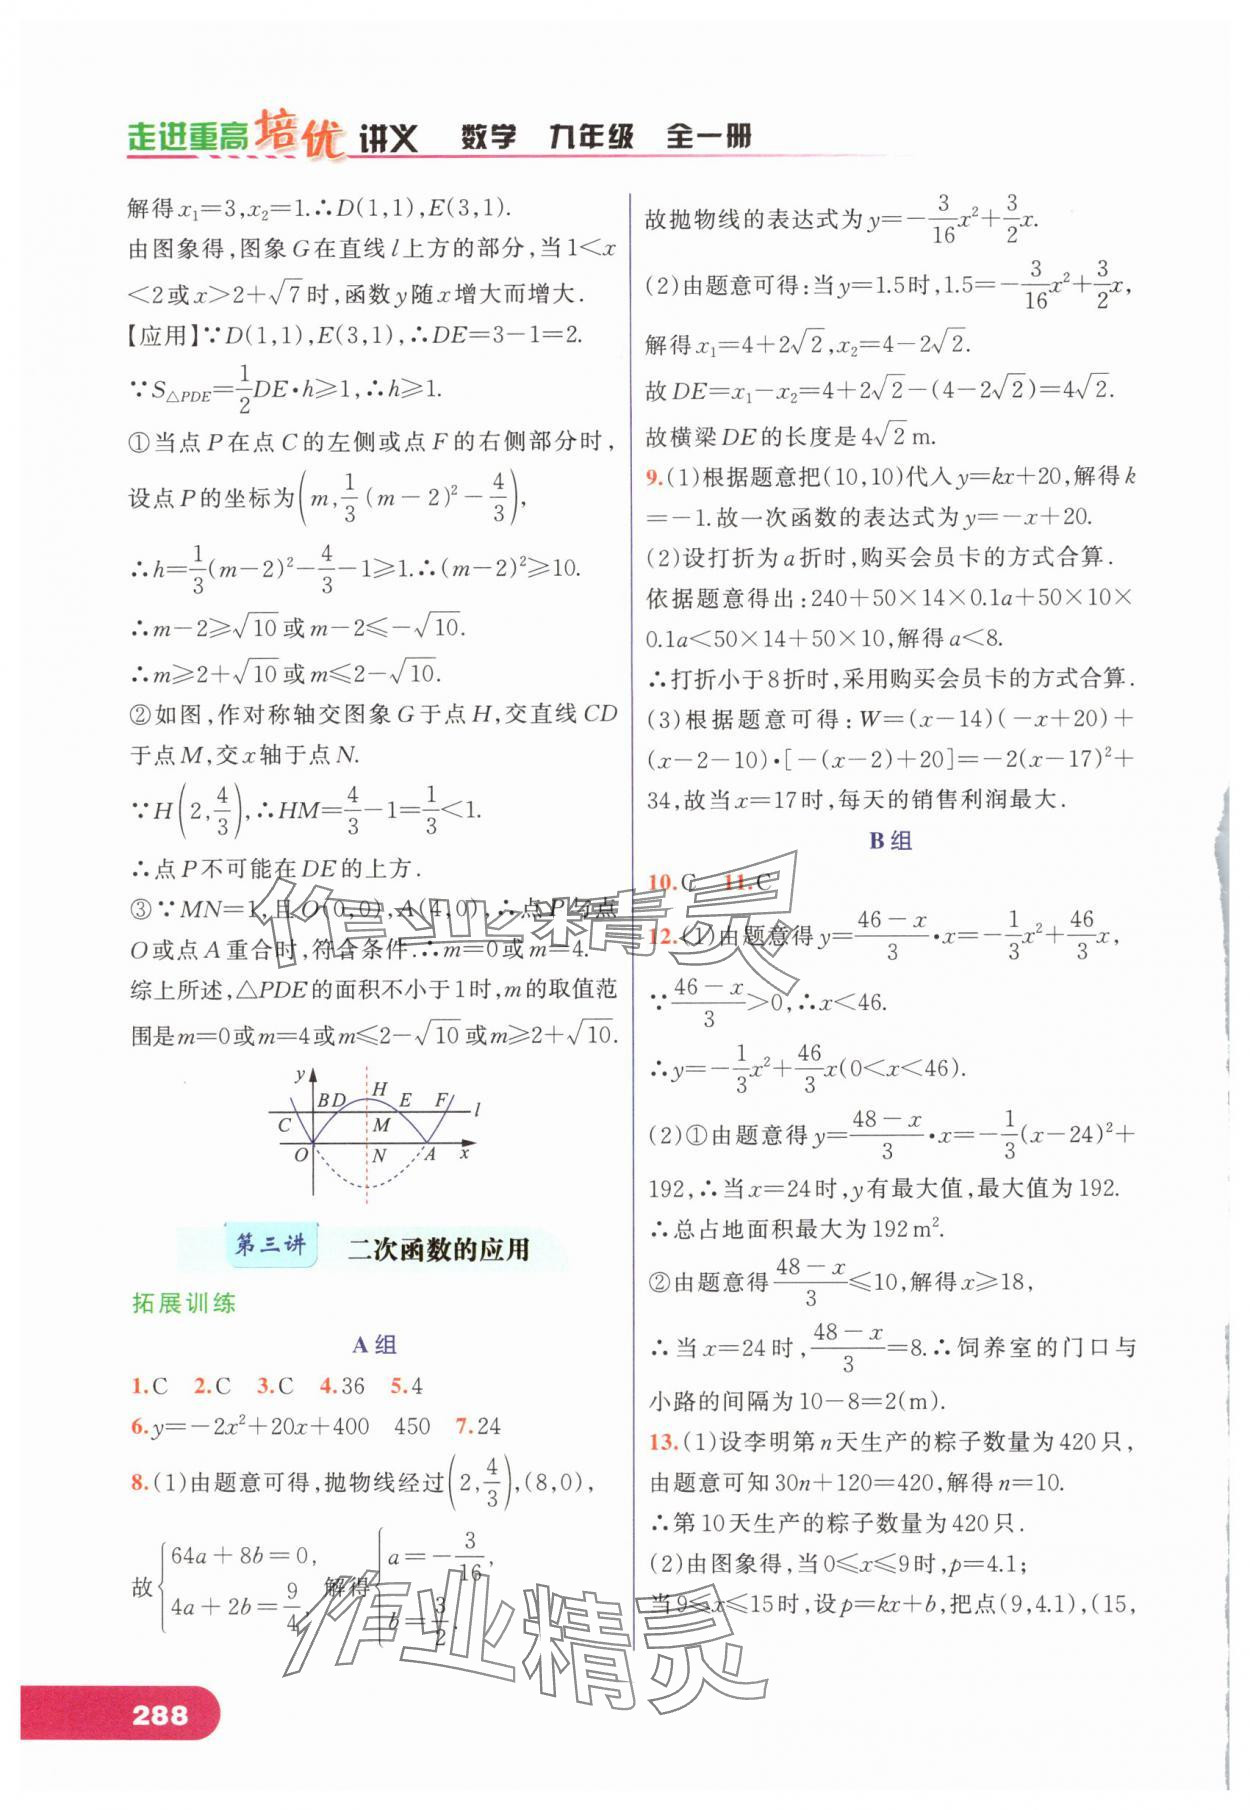 走进重高培优 讲义 数学 九年级 全一册
解得x₁=3,x₂=1.∴D(1,1),E(3,1).
由图象得,图象G在直线l上方的部分,当1<x
<2或x>2+√7时,函数y随x增大而增大.
【应用】∵D(1,1),E(3,1),∴DE=3-1=2.
∵S△PDE=1/2DE•h≥1,∴h≥1.
①当点P在点C的左侧或点F的右侧部分时,
设点P的坐标为(m,1/3(m-2)²-4/3),
∴h=1/3(m-2)²-4/3-1≥1.∴(m-2)²≥10.
∴m-2≥√10或m-2≤-√10.
∴m≥2+√10或m≤2-√10.
②如图,作对称轴交图象G于点H,交直线CD
于点M,交x轴于点N.
∵H(2,4/3),∴HM=4/3-1=1/3<1.
∴点P不可能在DE的上方.
③∵MN=1,且O(0,0),A(4,0),∴点P与点
O或点A重合时,符合条件.∴m=0或m=4.
综上所述,△PDE的面积不小于1时,m的取值范
围是m=0或m=4或m≤2-√10或m≥2+√10.
y
B D H E F l
C M
O N A x
第三讲 二次函数的应用
拓展训练
A组
1.C 2.C 3.C 4.36 5.4
6.y=-2x²+20x+400 450 7.24
8.(1)由题意可得,抛物线经过(2,4/3),(8,0),
故{64a+8b=0, 4a+2b=9/4, 解得{a=-3/16, b=3/2.
故抛物线的表达式为y=-3/16x²+3/2x.
(2)由题意可得:当y=1.5时,1.5=-3/16x²+3/2x,
解得x₁=4+2√2,x₂=4-2√2.
故DE=x₁-x₂=4+2√2-(4-2√2)=4√2.
故横梁DE的长度是4√2m.
9.(1)根据题意把(10,10)代入y=kx+20,解得k
=-1.故一次函数的表达式为y=-x+20.
(2)设打折为a折时,购买会员卡的方式合算.
依据题意得出:240+50×14×0.1a+50×10×
0.1a<50×14+50×10,解得a<8.
∴打折小于8折时,采用购买会员卡的方式合算.
(3)根据题意可得:W=(x-14)(-x+20)+
(x-2-10)•[-(x-2)+20]=-2(x-17)²+
34,故当x=17时,每天的销售利润最大.
B组
10.C 11.C
12.(1)由题意得y=46-x/3•x=-1/3x²+46/3x,
∵46-x/3>0,∴x<46.
∴y=-1/3x²+46/3x(0<x<46).
(2)①由题意得y=48-x/3•x=-1/3(x-24)²+
192,∴当x=24时,y有最大值,最大值为192.
∴总占地面积最大为192m².
②由题意得48-x/3≤10,解得x≥18,
∴当x=24时,48-x/3=8.∴饲养室的门口与
小路的间隔为10-8=2(m).
13.(1)设李明第n天生产的粽子数量为420只,
由题意可知30n+120=420,解得n=10.
∴第10天生产的粽子数量为420只.
(2)由图象得,当0≤x≤9时,p=4.1;
当9<x≤15时,设p=kx+b,把点(9,4.1),(15,
作业精灵
作业精灵
288